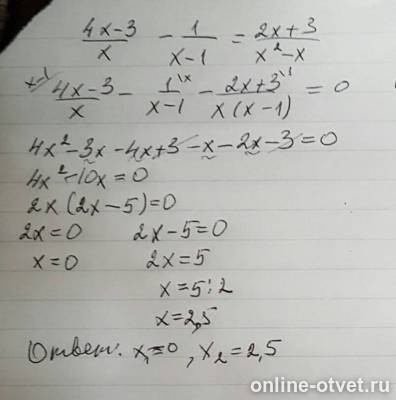 (4x-3)/x - 1/(x-1) = (2x+3)/(x²-x)
x-1\ (4x-3)/x - 1\x/(x-1) - (2x+3)\1/(x(x-1)) = 0
4x²-3x-4x+3-x-2x-3=0
4x²-10x=0
2x(2x-5)=0
2x=0 2x-5=0
x=0 2x=5
x=5:2
x=2,5
Ответ. x₁=0, x₂=2,5
online-otvet.ru